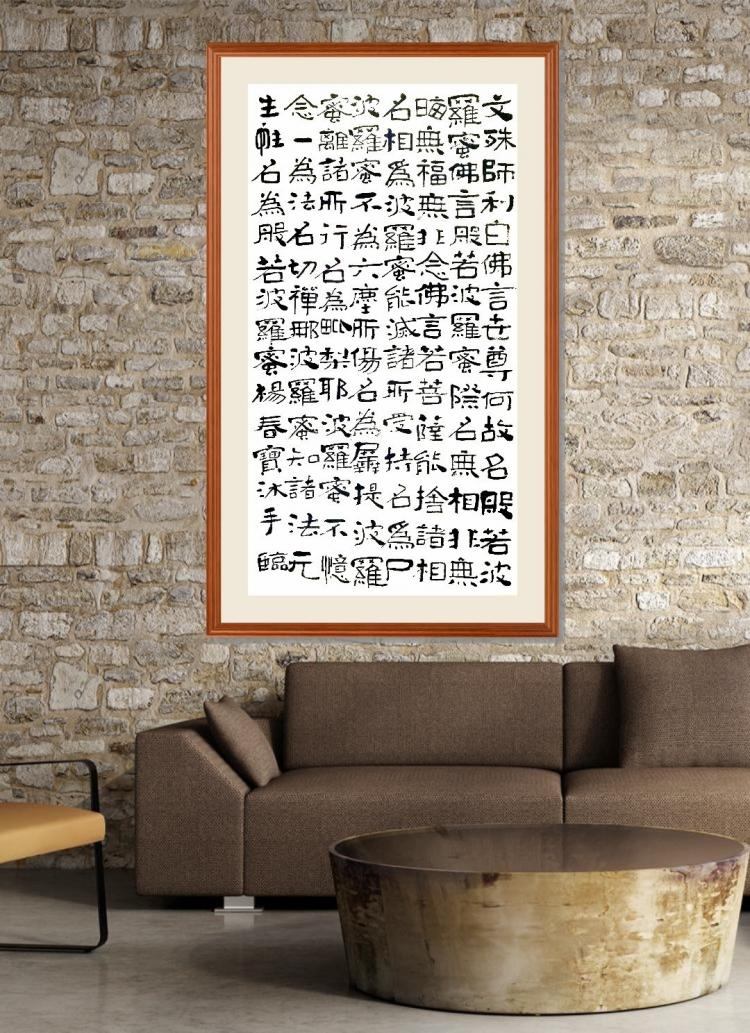 文殊師利白佛言世尊何故名般若波
羅蜜佛言般若波羅蜜際名無相非無
晦無福無非念佛言若菩薩能捨諸相
名相為波羅蜜能滅諸所受持名為尸
波羅蜜不為六塵所傷名為羼提波羅
蜜離諸所行名為毗梨耶波羅蜜不憶
念一為法名切禪那波羅蜜知諸法元
生性名為般若波羅蜜楊春寶沐手臨